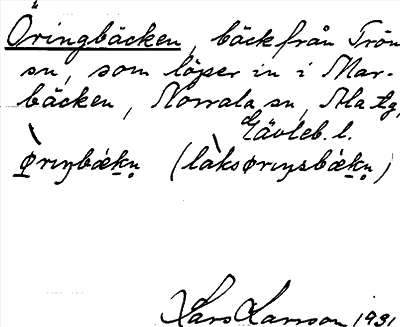 Öringbäcken, bäck från Trön
sn, som löper in i Mar-
bäcken, Norrala sn, Ala tg,
Gävleb. l.
ø̀rıŋbǽkn̥ (làksørıŋsbǽkn̥)
Lars Larsson 1931